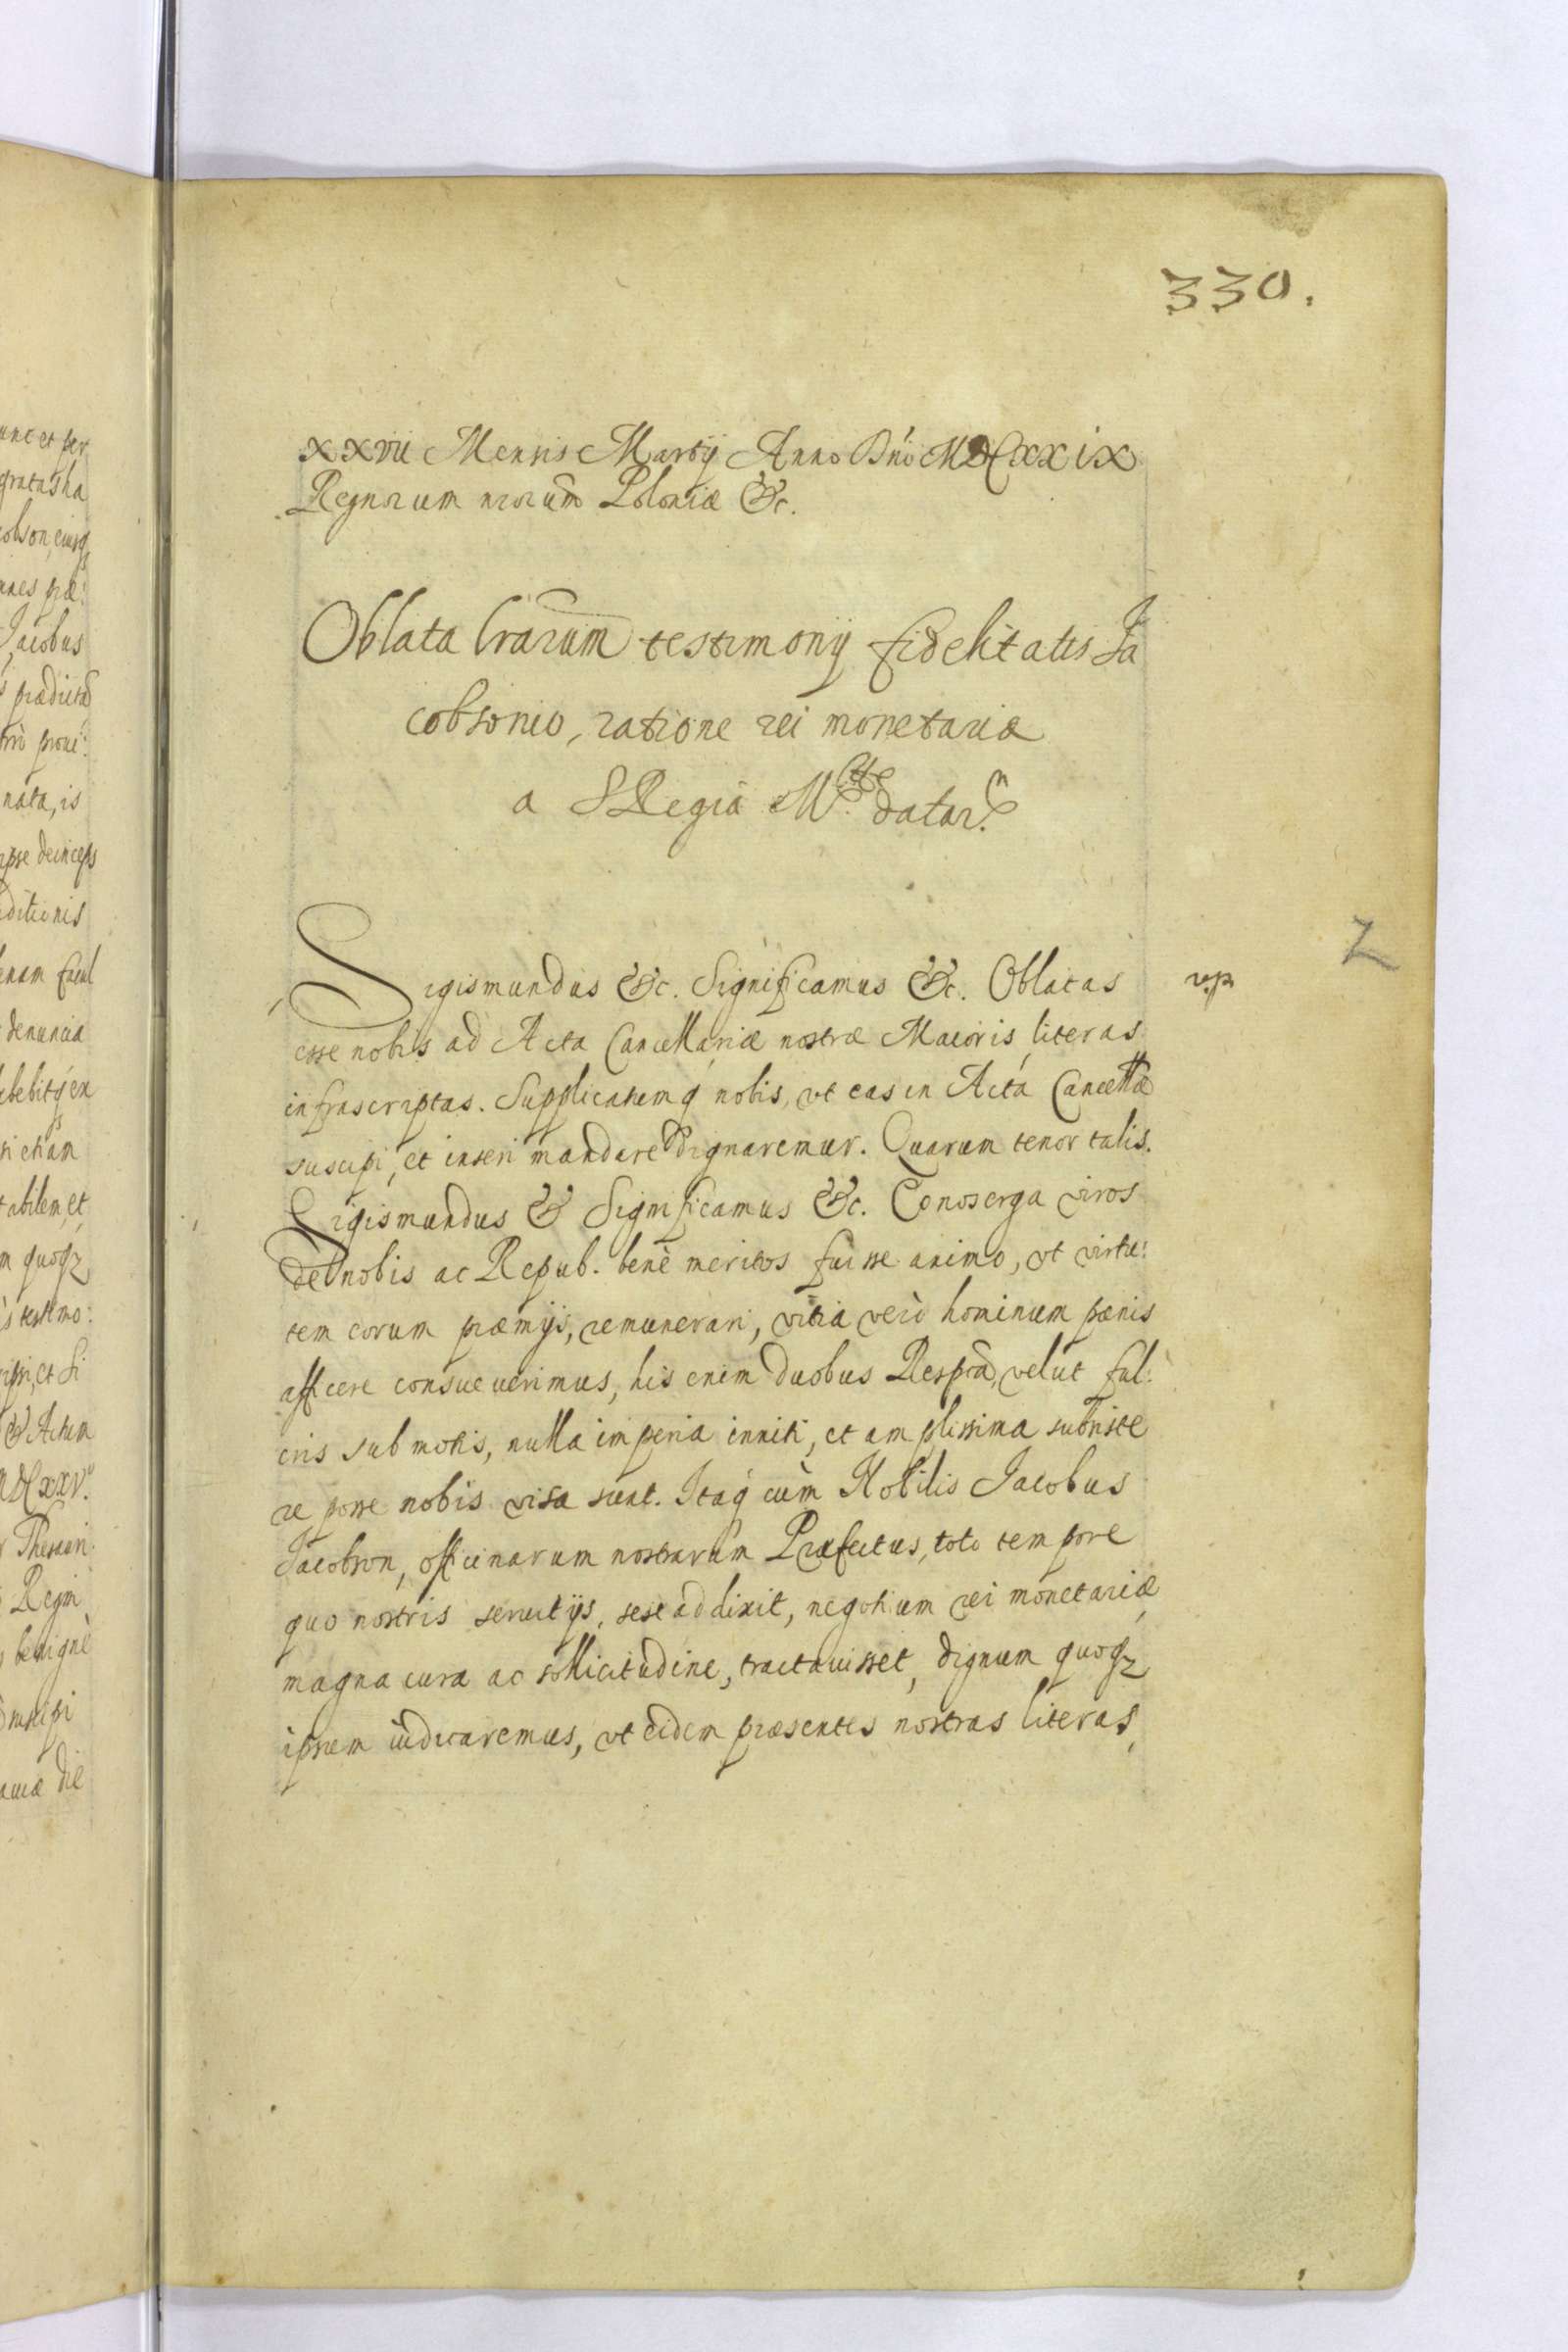 330.
xxvii Mensis Martij Anno Dńo MDCxxix
Regnorum nrorum Poloniæ &c.
Oblata lrarum testimonij fidelitatis Ja
cobsonio, ratione rei monetariæ
a S Regia Mtte datar.
Sigismundus &c. Significamus &c. Oblatas
esse nobis ad Acta Cancellariæ nostræ Maioris literas
infrascriptas. Supplicatumq́ nobis, vt eas in Acta Cancellæ
suscipi, et inseri mandare dignaremur. Quarum tenor talis.
Sigismundus & Significamus &c. Eo nos erga viros
de nobis ac Repub. benè meritos fuisse animo, vt virtu:
tem eorum præmijs, remunerari, vitia verò hominum pænis
afficere consueuerimus, his enim duobus Respcâ, velut ful:
cris submotis, nulla imperia inniti, et amplissima subsiste
re posse nobis visa sunt. Itaq́ cùm Nobilis Jacobus
Jacobson, officinarum nostrarum Præfectus, toto tempore
quo nostris seruitijs, sese addixit, negotium rei monetariæ,
magna cura ac sollicitudine, tractauisset, dignum quoqz
ipsum iudicaremus, vt eidem præsentes nostras literas,
unc et per
gratas ha
cobson, eiusq
nnes præ:
Jacobus
s prædictas
nata, is
ipse deinceps
ditionis
enam facul
denuncia
si etiam
tabilem, et
m quoqz
s testimo:
ipi, et si
& Actum
MDCxxv.
Regni
benignè
suscipi
die